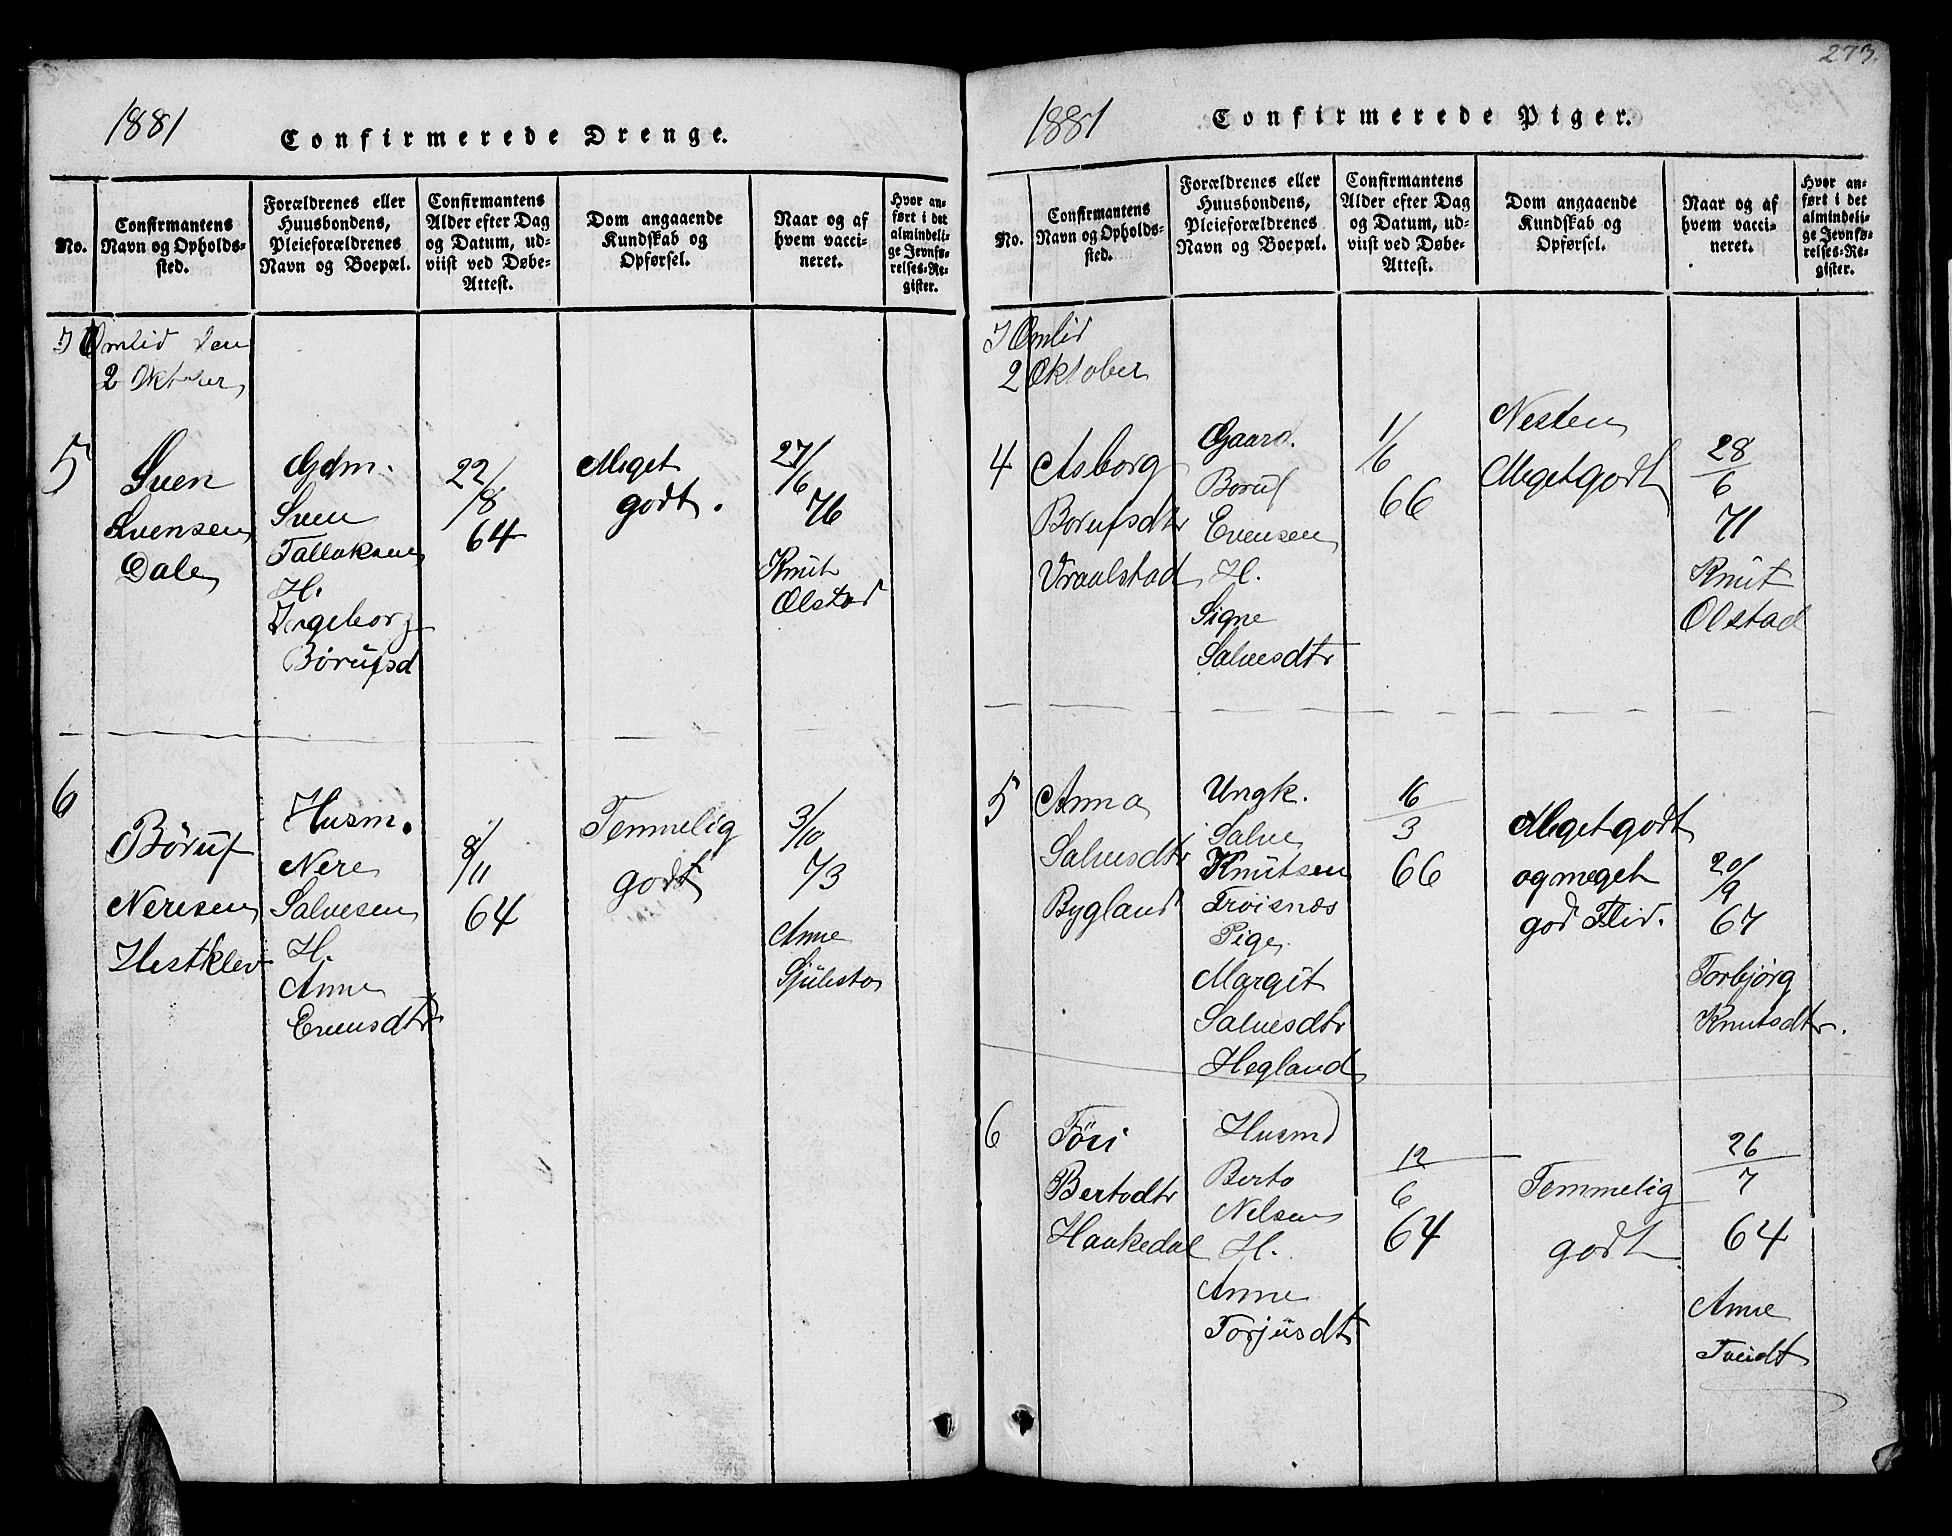 273.
1881
Confirmerede Drenge.
No.
Confirmantens
Navn og Opholds-
sted.
Forældrenes eller
Huusbondens,
Pleieforældrenes
Navn og Boepæl.
Confirmantens
Alder efter Dag
og Datum, ud-
viist ved Døbe-
Attest.
Dom angaaende
Kundskab og
Opførsel.
Naar og af
hvem vacci-
neret.
Hvor an-
ført i det
almindeli-
ge Jevnfø-
relses-Re-
gister.
I Omlid den
2 Oktober
5
Sven
Svensen
Dale
Gdm.
Sven
Tallaksen
H.
Ingeborg
Børufsd
22/8
64
Meget
godt.
27/6
76
Knut
Olstad
6
Børuf
Neresen
Hestklev
Husm.
Nere
Salvesen
H.
Anne
Evensdtr
8/11
64
Temmelig
godt
3/10
73
Anne
1881
Confirmerede Piger.
No.
Confirmantens
Navn og Opholds-
sted.
Forældrenes eller
Huusbondens,
Pleieforældrenes
Navn og Boepæl.
Confirmantens
Alder efter Dag
og Datum, ud-
viist ved Døbe-
Attest.
Dom angaaende
Kundskab og
Opførsel.
Naar og af
hvem vacci-
neret.
Hvor an-
ført i det
almindeli-
ge Jevnfø-
relses-Re-
gister.
I Omlid
2 Oktober
4
Asborg
Borufsdtr
Vraalstad
Gaard.
Boruf
Evensen
H.
Signe
Salvesdtr
1/6
66
Nesten
Meget godt
28/6
71
Knut
Olstad
5
Anna
Salvesdtr
Bygland
Ungk.
Salve
Knutsen
Frøisnæs
Pige
Margit
Salvesdtr
Hegland
16/3
66
Meget godt
og meget
god Flid.
20/9
67
Torbjørg
Knutsdtr.
6
Töri
Bertodtr
Haakedal
Husmd
Berto
Nelsen
H.
Anne
Torjusdt
12/6
64
Temmelig
godt
26/7
64
Anne
Tveidt